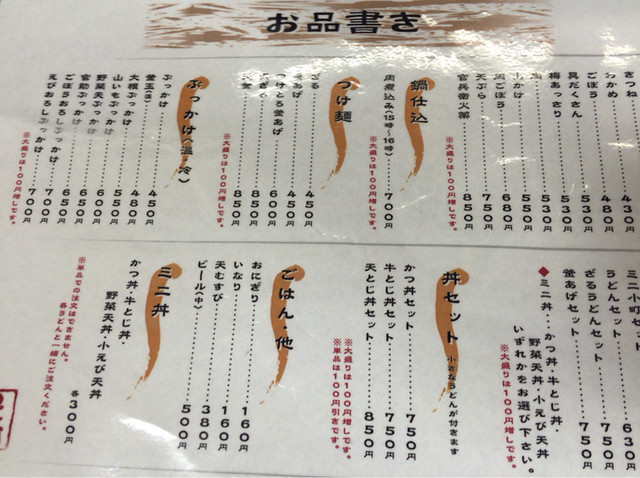 お品書き
きつね 430円
わかめ 480円
ごぼう 530円
具だくさん 530円
梅あっさり 530円
山かけ 550円
肉ごぼう 680円
天ぷら 750円
官兵衛火薬 850円
※大盛りは100円増しです。
鍋仕込
肉煮込み(15時～16時) 700円
※大盛りは100円増しです。
つけ麺
ざる 450円
釜あげ 450円
つけとろ釜あげ 600円
850円
850円
※大盛りは100円増しです。
ぶっかけ(温・冷)
ぶっかけ 450円
釜玉(温) 480円
大根ぶっかけ 550円
山いもぶっかけ 600円
野菜天ぶっかけ 650円
官助ぶっかけ 650円
ごぼうおろしぶっかけ 700円
えびおろしぶっかけ 700円
※大盛りは100円増しです。
ミニ小町 630円
うどんセット 750円
ざるうどんセット 750円
釜あげセット 750円
◆ミニ丼・・かつ丼・牛とじ丼・
野菜天丼・小えび天丼
いずれかをお選び下さい。
※大盛りは100円増しです。
丼セット 小さなうどんが付きます
かつ丼セット 750円
牛とじ丼セット 750円
天とじ丼セット 850円
※大盛りは100円増しです。
※単品は100円引きです。
ごはん・他
おにぎり 160円
いなり 160円
天むすび 380円
ビール(中) 500円
ミニ丼
かつ丼・牛とじ丼・
野菜天丼・小えび天丼
各300円
※単品での注文はできません。
各うどんと一緒にご注文ください。